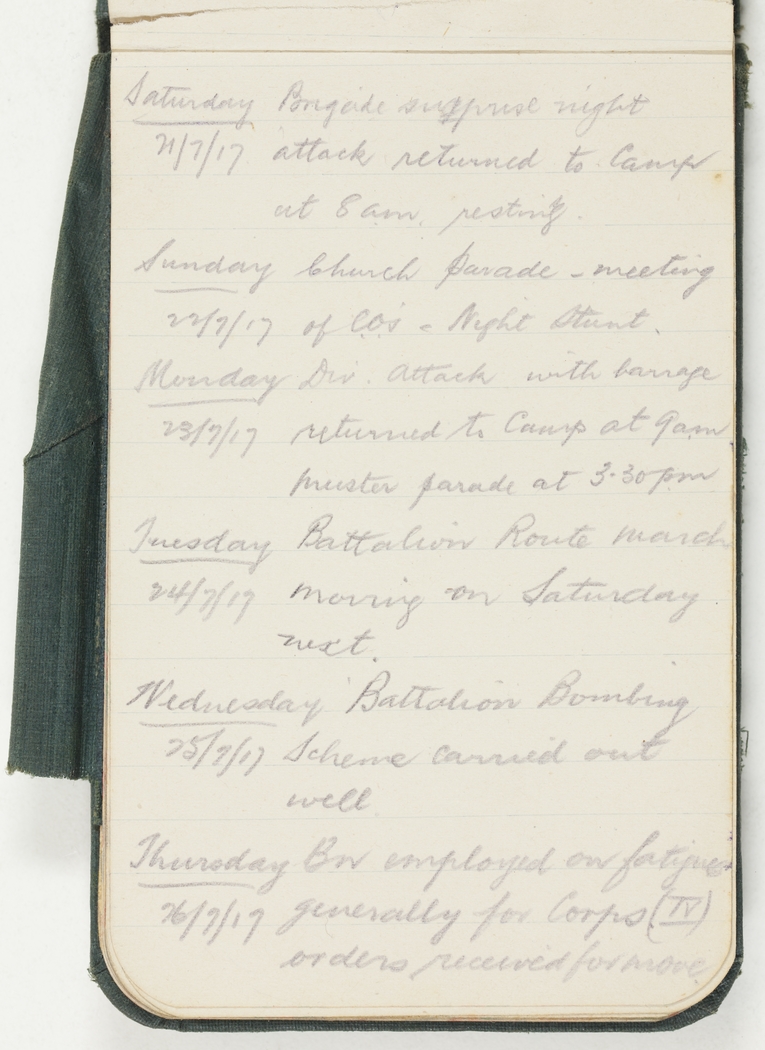 Saturday Brigade surprise night
21/7/17 attack returned to Camp
at 8 am. resting.
Sunday Church parade - meeting
22/7/17 of COs - Night Stunt.
Monday Div. attack with barrage
23/7/17 returned to Camp at 9am
muster parade at 3.30pm
Tuesday Battalion Route march
24/7/17 moving on Saturday
next.
Wednesday Battalion Bombing
25/7/17 Scheme carried out
well
Thursday Bn employed on fatigues
26/7/17 generally for Corps (IV)
orders received for move